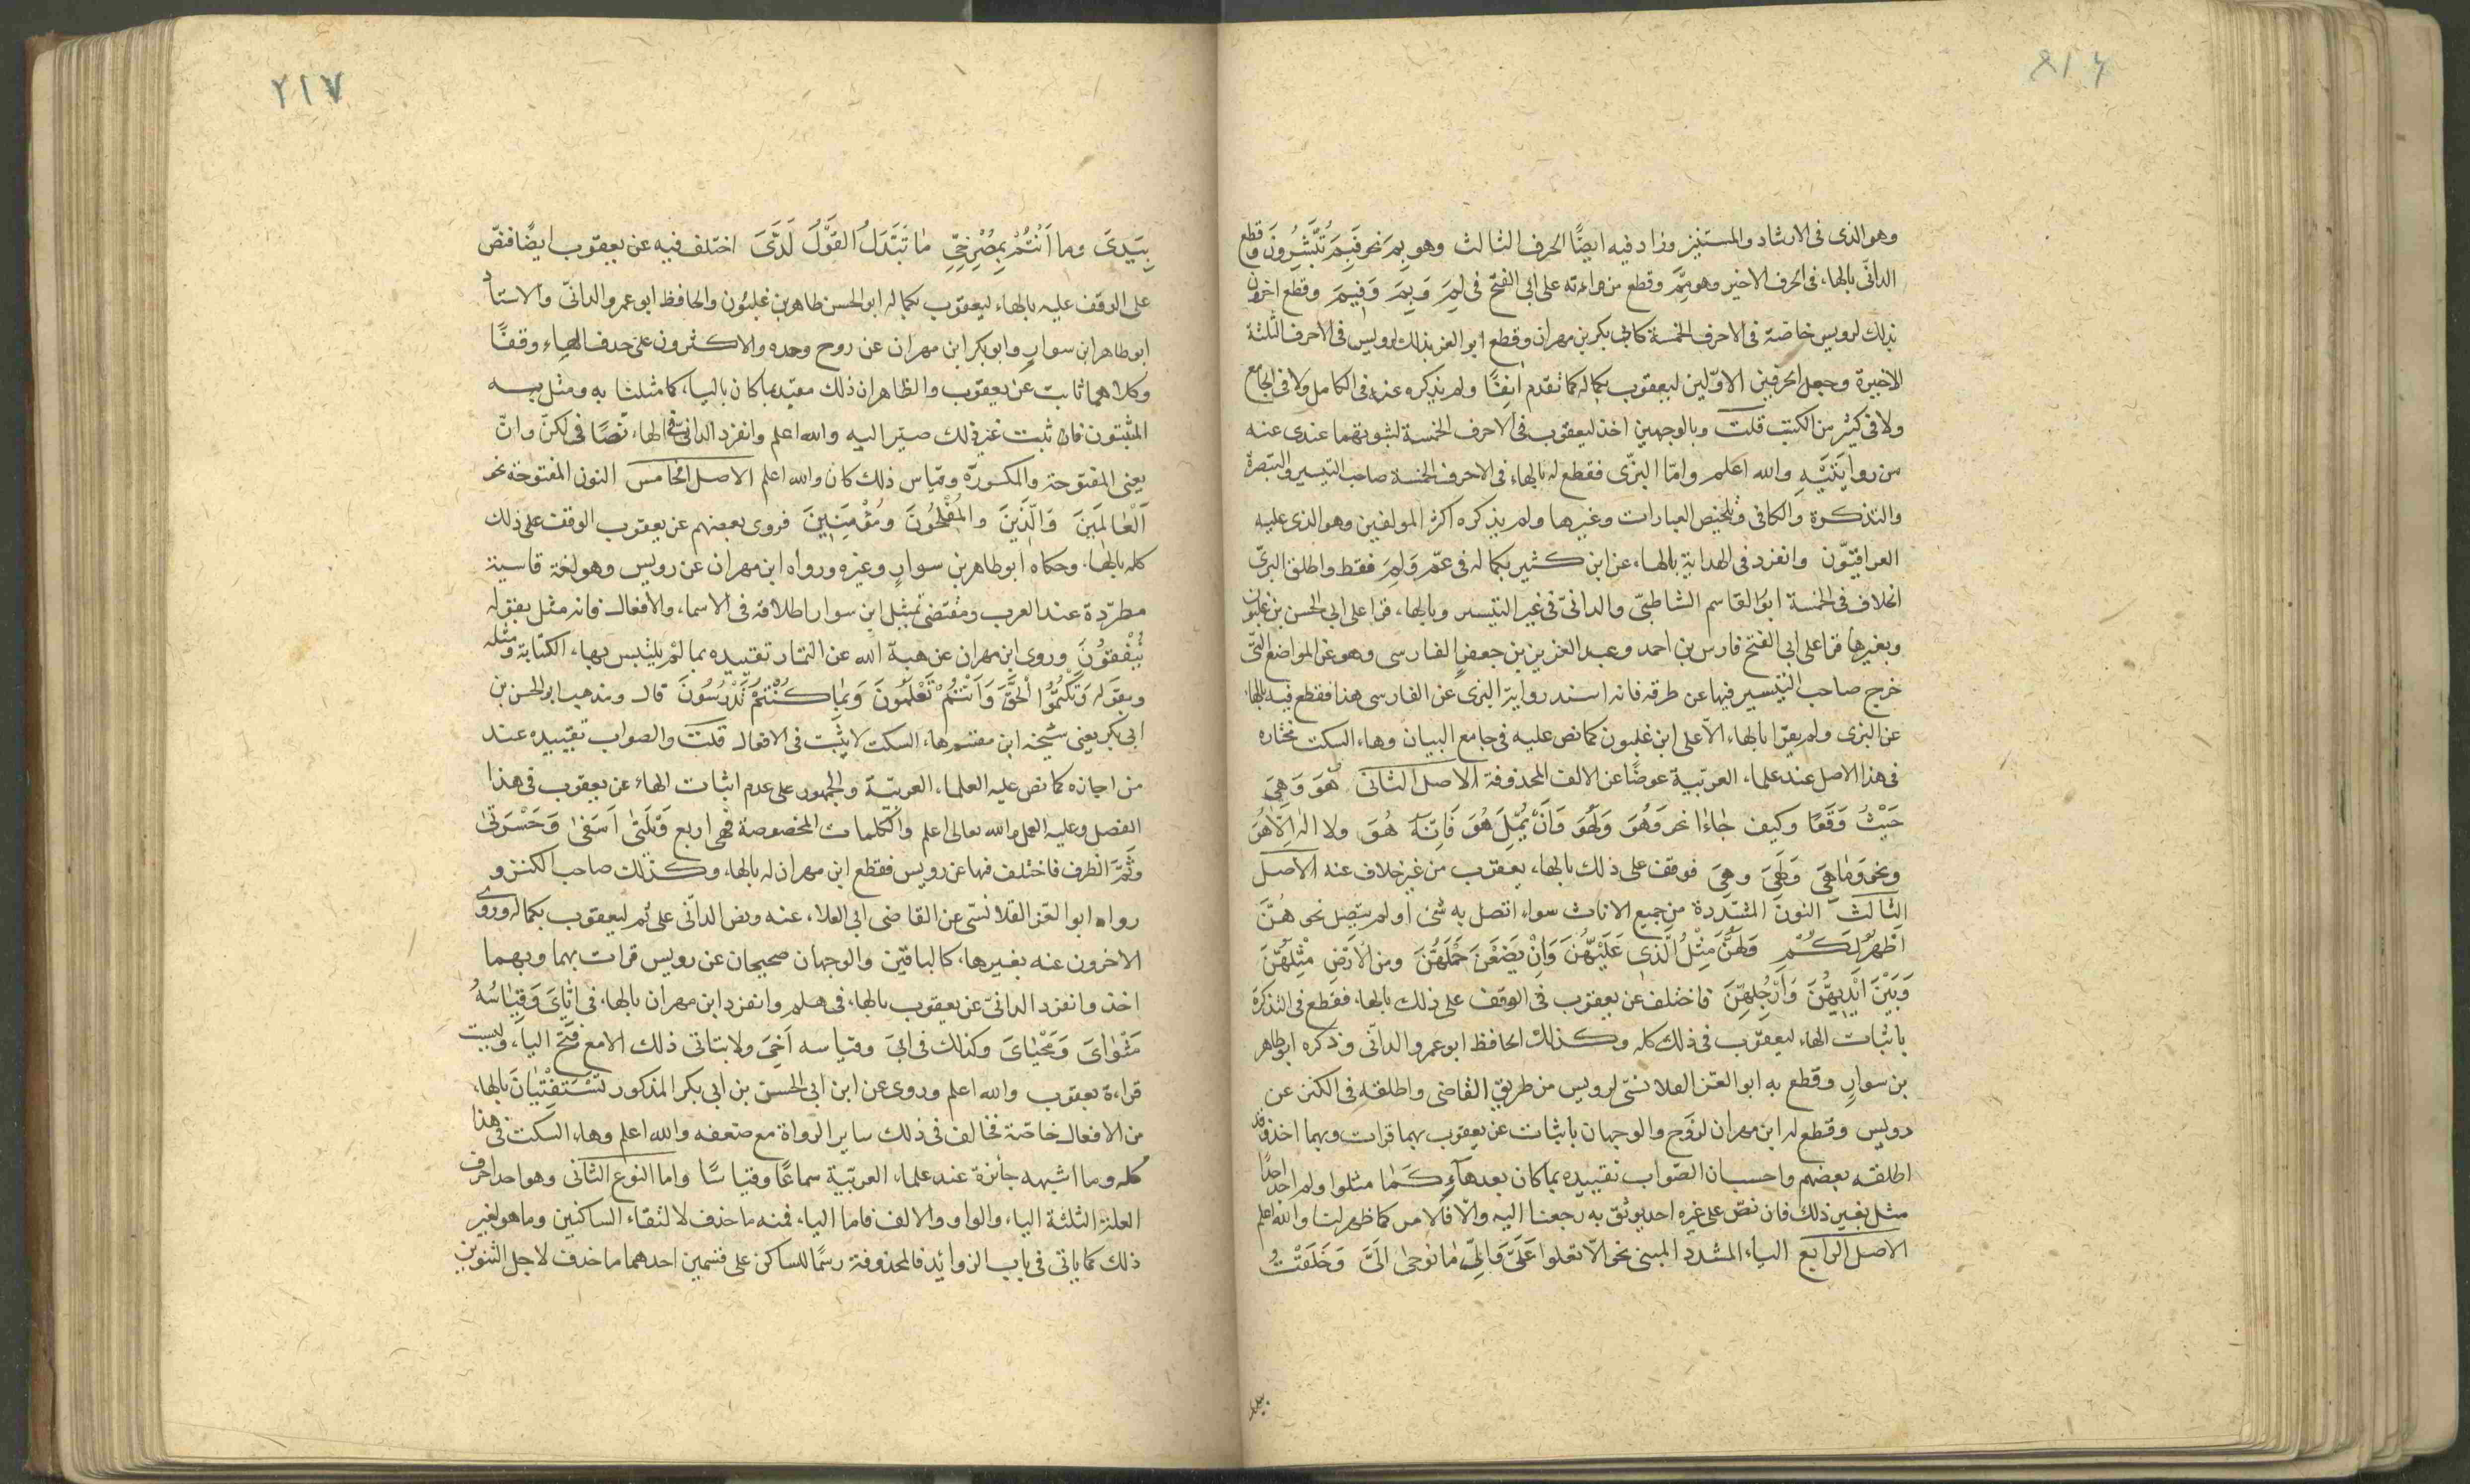 ٨١٦
وهو الذى فى الارشاد والمستنير وزاد فيه ايضًا الحرف الثالث وهو بِمَ نحو فَبِمَ تُبَشِّرُونَ وقطع
الدانّى بالهاء فى الحرف الاخير وهو مِمَّ وقطع من قراءته على ابى الفتح فى لِمَ وَبِمَ وَفِيمَ وقطع اخرون
بذلك لرويس خاصّة فى الاحرف الخمسة كابى بكر بن مهران وقطع ابو العز بذلك لرويس فى الاحرف الثلثة
الاخيرة وجعل الحرفين الاوّلين ليعقوب بكماله كما تقدم انِفًا ولم يذكره عنه فى الكامل ولا فى الجامع
ولا فى كثير من الكتب قلت وبالوجهين اخذ ليعقوب فى الاحرف الخمسة لثبوتهما عندى عنه
من روايَتَيْهِ والله اعلم وامّا البزّى فقطع له بالهاء فى الاحرف الخمسة صاحب التيسير والتبصرة
والتذكرة والكافى وتلخيص العبارات وغيرها ولم يذكره اكثر المولفين وهو الذى عليه
العراقيّون وانفرد فى الهداية بالهاء عن ابن كثير بكماله فى عمّ وَلِمَ فقط واطلق البزىّ
الخلاف فى الخمسة ابو القاسم الشاطبىّ والدانىّ فى غير التيسير وبالهاء قرا على ابى الحسن بن غلبون
وبغيرها قرا على ابى الفتح فارس بن احمد وعبد العزيز بن جعفرٍ الفارسى وهو عن المواضع التّى
خرج صاحب التيسير فيها عن طرقه فانه اسند رواية البزى عن الفارسى هذا فقطع فيه بالهاء
عن البزى ولم يقرا بالهاء الاّ على ابن غلبون كما نص عليه فى جامع البيان وهاء السكت مختاره
فى هذا الاصل عند علماء العربّية عوضًا عن الالف المحذوفة الاصل الثانى هُوَ وَهِىَ
حَيْثُ وَقَعَا وكيف جَاءَا نحو وَهُوَ وَلَهُوَ وَاَنْ يُمِلَّ هُوَ فَاِنَّه هُوَ ولا اله اِلاّ هُوَ
ونحو وَمَا هِىَ وَلَهِىَ وهِىَ فوقف على ذلك بالهاء يعقوب من غير خلاف عنه الاصل
الثالث النون المشدّدة من جميع الاناث سواء اتصل به شئ او لم يتّصِل نحو هُنَّ
اَطْهَرُ لَكُمْ وَلَهُنَّ مِثْلُ الَّذِى عَلَيْهُنَّ وَاَنْ يَضَعْنَ حَمْلَهُنَّ ومن الاَرْضِ مِثْلَهُنَّ
وَبَيْنَ اَيْدِيهُنَّ وَاَرْجُلِهِنَّ فاختلف عن يعقوب فى الوقف على ذلك بالهاء فقطع فى التذكرة
باثبات الهاء ليعقوب فى ذلك كله وكذلك الحافظ ابو عمرو الدانّى وذكره ابو طاهر
بن سوارٍ وقطع به ابو العّز القلانسّى لرويس من طريق القاضى واطلقه فى الكنز عن
رويس وقطع له ابن مهران لرَوْح والوجهان باثبات عن يعقوب بهما قرات وبهما اخذ وقد
اطلقه بعضهم واحسبان الصّواب تقييده بما كان بعد هاءٍ كَمَا مثلوا ولم اجد احدًا
مثل بغير ذلك فان نصّ على غيره احد يوثق به رجعنا اليه والاّ فالامر كما ظهر لنا والله اعلم
الاصل الرابع الياء المشدد المبنى نحو الاّ تعلوا عَلَىَّ وَاِلَىَّ مَا يُوحٰى اِلَىَّ وَخَلَقْتُ
بيدىّ
٢١٧
بِيَدىَّ وما اَنْتُمْ بِمُصْرِخِىِّ مَا تُبَدَّلُ القَوْلُ لَدَىَّ اختلف فيه عن يعقوب ايضًا فنصّ
على الوقف عليه بالهاء ليعقوب بكماله ابو الحسن طاهر بن غلبُون والحافظ ابو عمرو الدانىّ والاستاد
ابو طاهر ابن سوارٍ وابو بكر ابن مهران عن روح وحده والاكثرون على حذف الهاء وقفًا
وكلاهما ثابت عن يعقوب والظاهر ان ذلك مقيّد بما كان بالياء كما مثلنا به ومثل به
المثبتون فان ثبت غير ذلك صيّر اليه والله اعلم وانفرد الدانىّ فى الهاء نصًا فى لكنّ وانّ
يعنى المفتوحة والمكسورَة وقياس ذلك كان والله اعلم الاصل الخامس النون المفتوحة نحو
اَلْعَالَمِينَ وَالَّذِينَ والمُفْلِحُونَ ومُؤْمِنِينَ فروى بعضهم عن يعقوب الوقف على ذلك
كله بالهاء وحكاه ابو طاهر بن سوارٍ وغيره ورواه ابن مهران عن رويس وهو لغة قاسية
مطرّدة عند العرب ومقتضى تمثيل ابن سوار اطلاقه فى الاسماء والافعال فانه مثل بقوله
يُنْفِقُونَ وروى ابن مهران عن هبة الله عن التمار تقييده بما لمْ يلتبس بهاء الكنّاية ومثله
وبقوله وَتَكْتُمُوا الْحَقَّ وَاَنْتُمْ تَعْلَمُونَ وَبِمَا كُنْتُمْ تَدْرُسُونَ قال ومذهب ابو الحسن بن
ابى بكر يعنى شيخه ابن مقسم هاء السكت لا يثبت فى الافعال قلت والصواب تقييده عند
من اجازه كما نص عليه العلماء العربيّة والجمهور على عدم اثبات الهاء عن يعقوب فى هذا
الفصل وعليه العمل والله تعالى اعلم واَلكلمات المخصوصة فهى اربع وَيْلَتىٰ اَسَفىٰ وَحَسْرَتىٰ
وثَمَّ الظرف فاختلف فيها عن رويس فقطع ابن مهران له بالهاء وكذلك صاحب الكنز و
رواه ابو العّز القلانسّى عن القاضى ابى العلاء عنه ونص الدانّى على ثم ليعقوب بكماله وروى
الاخرون عنه بغيرها كالباقين والوجهان صحيحان عن رويس قرات بهما وبهما
اخذ وانفرد الدانىّ عن يعقوب بالهاء فى هلم وانفرد ابن مهران بالهاء فى اِيَّاىَ وَقِيَاسُهُ
مَثْوَاىَ وَمَحْيَاىَ وكذلك فى اَبِىَ وقياسه اَخِىَ ولا يتاتى ذلك الا مع فَتْح الياء وليست
قراءة يعقوب والله اعلم وروى عن ابن ابى الحسن بن ابى بكر المذكور تَسْتَفْتِيَانَ بالهاء
من الافعال خاصّة فخالف فى ذلك ساير الرواة مع ضعفه والله اعلم وهاء السكت فى هذا
كله وما اشبهه جائزة عند علماء العربّية سماعًا وقياسًا واما النوع الثانى وهو احد احرف
العلة الثلثة الياء والواو والالف فاما الياء فمنه ما حذف لالتقاء الساكنين وما هو لغير
ذلك كما ياتى فى باب الزوائد فالمحذوفة رسمًا للساكن على قسمين احدهما ما حذف لاجل التنوين